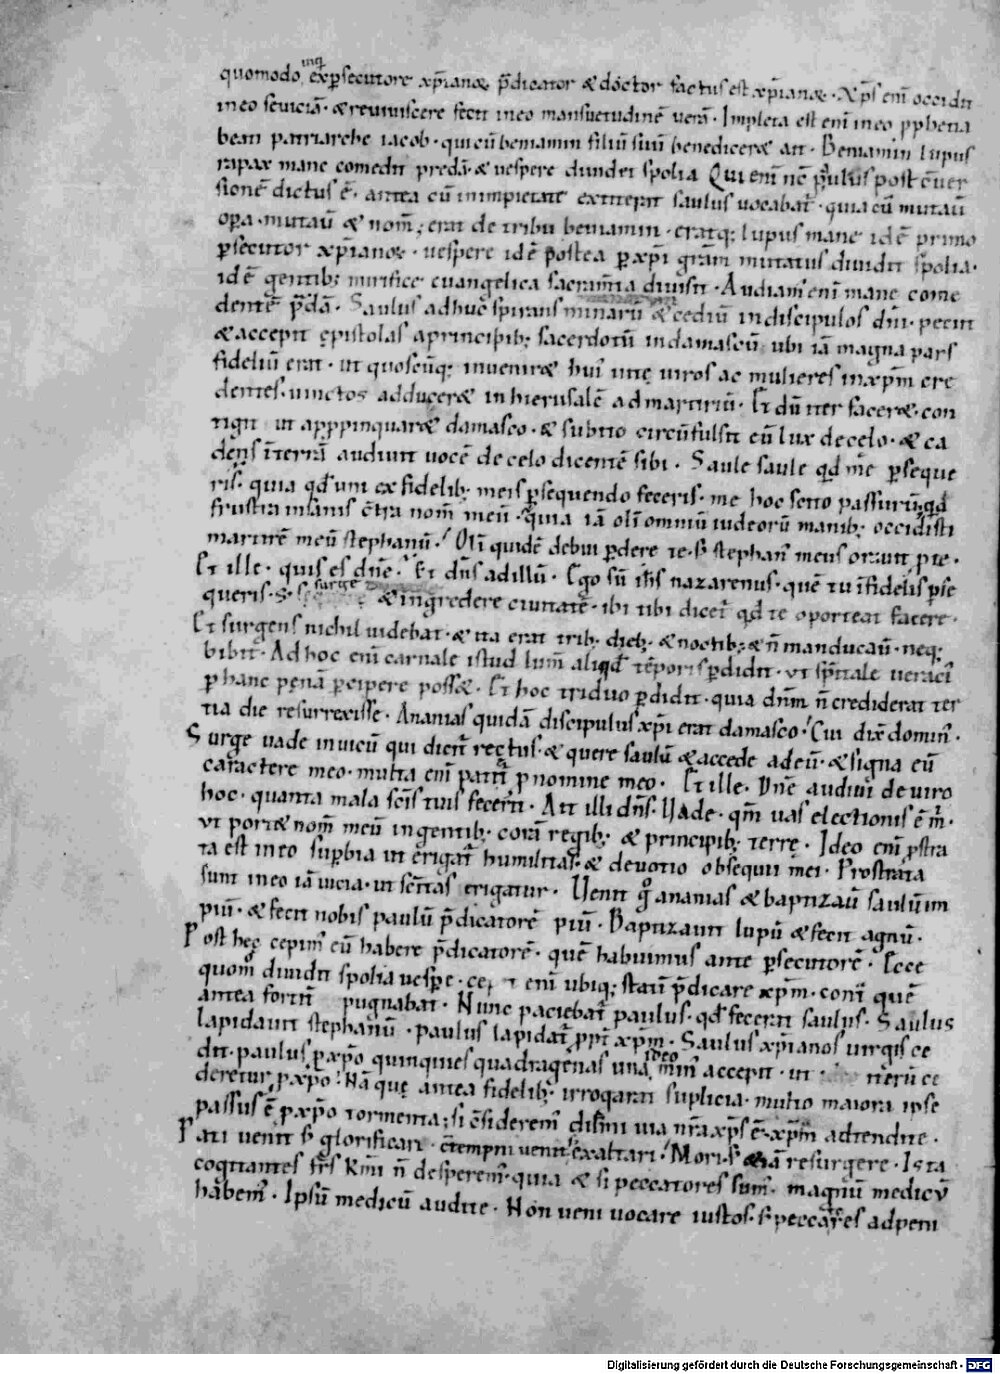 inq̇
quomodo exꝑsecutore xp̄ianoꝝ p̄dicator & doctor factus est xp̄ianoꝝ · Xp̄s eni᷒ occidit
in eo seviciā · & reviviscere fecit in eo mansuetudinē verā · Impleta est eni᷒ in eo ꝓphetia
beati patriarche iacob · qui cū beniamin filiū suū benediceret ait · Beniamin lupus
rapax mane comedit predā · & vespere dividet spolia Qui eni᷒ nc̄ paulus post c̄ver
sionē dictus ē · antea cū in impietate extiterit saulus vocabat᷑ · quia cū mutaū
opa · mutaū & nom̄ ; erat de tribu beniamin · eratq; lupus mane idē primo
ꝑsecutor xp̄ianoꝝ · vespere idē postea ꝑ xp̄i grām mutatus dividit spolia ·
idē gentib; mirifice evangelica sacram̄ta divisit · Audiam᷒ eni᷒ mane come
dentē p̄dā · Saulus adhuc spirans minarū & cediū in discipulos dn̄i · petiit
& accepit epistolas a principib; sacerdotū in damascū ubi iā magna pars
fideliū erat · ut quoscūq; inveniret hui᷒ vite viros ac mulieres in xp̄m cre
dentes · vinctos adduceret in hierusalē ad martiriū · Et dū iter faceret · con
tigit ut appropinquaret damasco · & subito circūfulsit eū lux de celo · & ca
dens in terrā audivit vocē de celo dicentē sibi · Saule saule qd me ꝑseque
ris · quia qd uni ex fidelib; meis ꝑsequendo feceris · me hoc scito passurū · qd
frustra insanis c̄tra nom̄ meū · quia iā oli᷒ omniū iudeorū manib; occidisti
martirē meū stephanū · Oli᷒ quidē debui ꝑdere te · s; stephan᷒ meus oravit ꝓ te ·
Et ille · quis es dn̄e · Et dn̄s ad illū · Ego sū ih̄s nazarenus · quē tu infidelis ꝑse
queris · S; surge & ingredere civitatē · ibi tibi dicet᷑ qd te oporteat facere ·
Et surgens nichil videbat · & ita erat trib; dieb; & noctib; & n̄ manducaū · neq;
bibit · Ad hoc eni᷒ carnale istud lum̄ aliqd tēporis ꝑdidit · ut sp̄itale veraci᷒
ꝑ hanc penā ꝑcipere posset · Et hoc triduo ꝑdidit · quia dn̄m n̄ crediderat ter
tia die resurrexisse · Ananias quidā discipulus xp̄i erat damasco · Cui dix̄ domin᷒ ·
Surge vade in vicū qui dicit᷑ rectus · & quere saulū & accede ad eū · & signa eū
caractere meo · multa eni᷒ patit᷑ ꝓ nomine meo · Et ille · Dn̄e audivi de viro
hoc · quanta mala scis tuis fecerit · Ait illi dn̄s · Vade · qm̄ vas electionis ē m ·
ut portet nom̄ meū in gentib; corā regib; & principib; terre · Ideo eni᷒ ꝓstra
ta est in eo supbia ut erigat᷑ humilitas · & devotio obsequii mei · Prostrata
sunt in eo iā vicia · ut scītas erigatur · Venit g̊ ananias & baptizaū saulū im
piū · & fecit nobis paulū p̄dicatorē piū · Baptizavit lupū & fecit agnū ·
Post hec cepim᷒ eū habere p̄dicatorē · quē habuimus ante ꝑsecutorē · Ecce
quom̊ dividit spolia vespe · cepit eni᷒ ubiq; statī p̄dicare xp̄m · cont᷑ quē
antea fortit᷑ pugnabat · Nunc paciebat᷑ paulus · qd fecerat saulus · Saulus
lapidavit stephanū · paulus lapidat᷑ ꝓpt᷑ xp̄m · Saulus xp̄ianos virgis ce
dit · paulus ꝑ xp̄o quinquies quadragenas una min᷒ accepit · ut ideo iterū ce
deretur ꝓ xp̄o · Nā que antea fidelib; irrogavit suplicia · multo maiora ipse
passus ē ꝓ xp̄o tormenta ; si c̄siderem᷒ via nr̄a xp̄s ē · xp̄m adtendite ·
Pati venit s; glorificari · c̄tempni venit s; exaltari · Mori · s; etiā resurgere · Ista
cogitantes frs̄ km̄i n̄ desperem᷒ · quia & si peccatores sum᷒ · magnū medicū
habem᷒ · Ipsū medicū audite · Non veni vocare iustos · s; peccatores ad peni
Digitalisierung gefördert durch die Deutsche Forschungsgemeinschaft · DFG